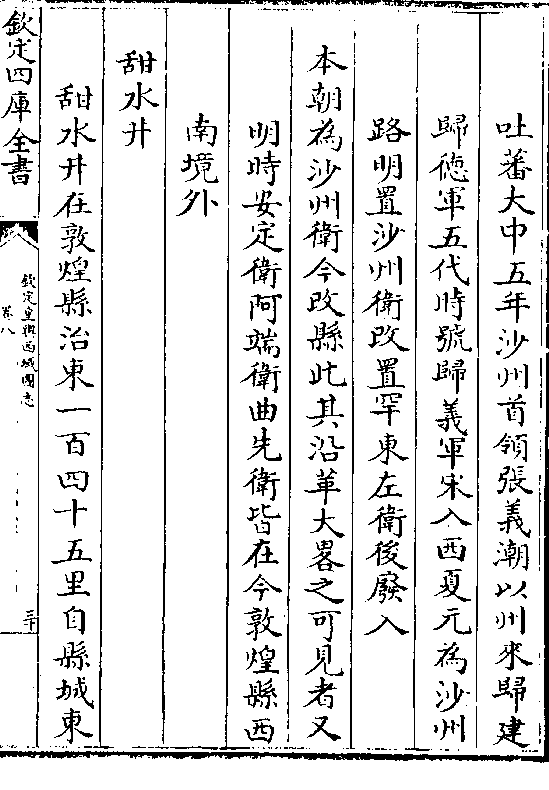 吐蕃大中五年沙州首領張義潮以州來歸建
歸徳軍五代時號歸義軍宋入西夏元為沙州
路明置沙州衛改置罕東左衛後廢入
本朝為沙州衛今改縣此其沿革大畧之可見者又
明時安定衛阿端衛曲先衛皆在今敦煌縣西
南境外
甜水井
甜水井在敦煌縣治東一百四十五里自縣城東
欽定四庫全書
欽定皇輿西域圖志
卷八
三十